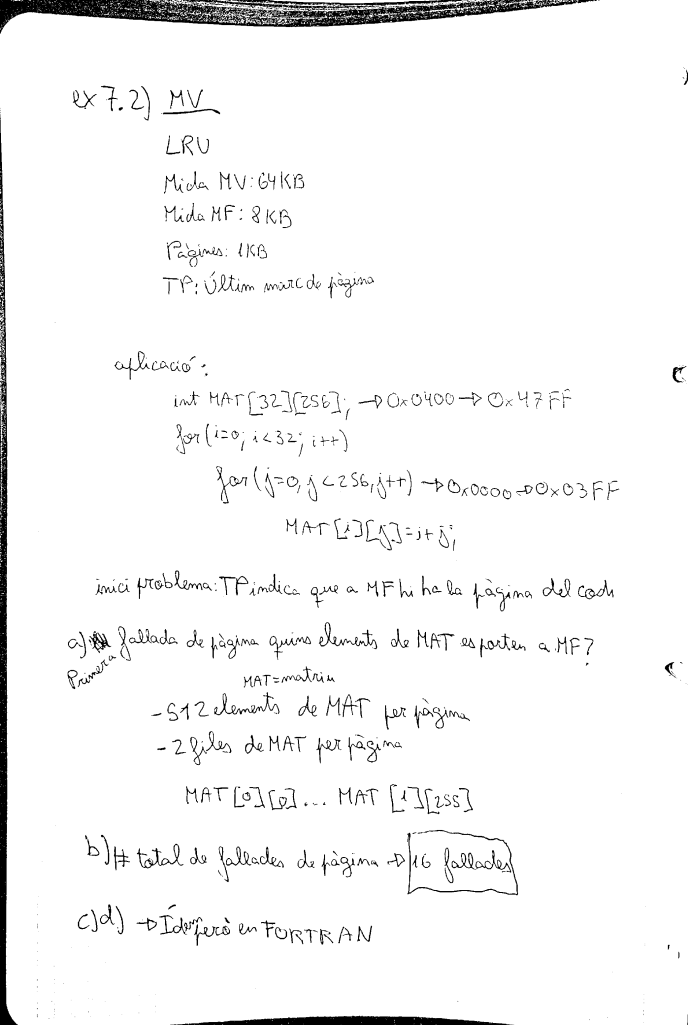 ex 7.2) MV
LRU
Mida MV: 64KB
Mida MF: 8KB
Pàgines: 1KB
TP: Últim marc de pàgina
aplicació:
int MAT[32][256]; → 0x0400 → 0x47FF
for(i=0; i<32; i++)
for(j=0, j<256, j++) → 0x0000 → 0x03FF
MAT[i][j]=i+j;
inici problema: TP indica que a MF hi ha la pàgina del codi
a) fallada de pàgina quins elements de MAT es porten a MF?
Primera
MAT=matriu
- 512 elements de MAT per pàgina
- 2 files de MAT per pàgina
MAT[0][0]... MAT[1][255]
b) # total de fallades de pàgina → 16 fallades
c)d) → Ídem però en FORTRAN